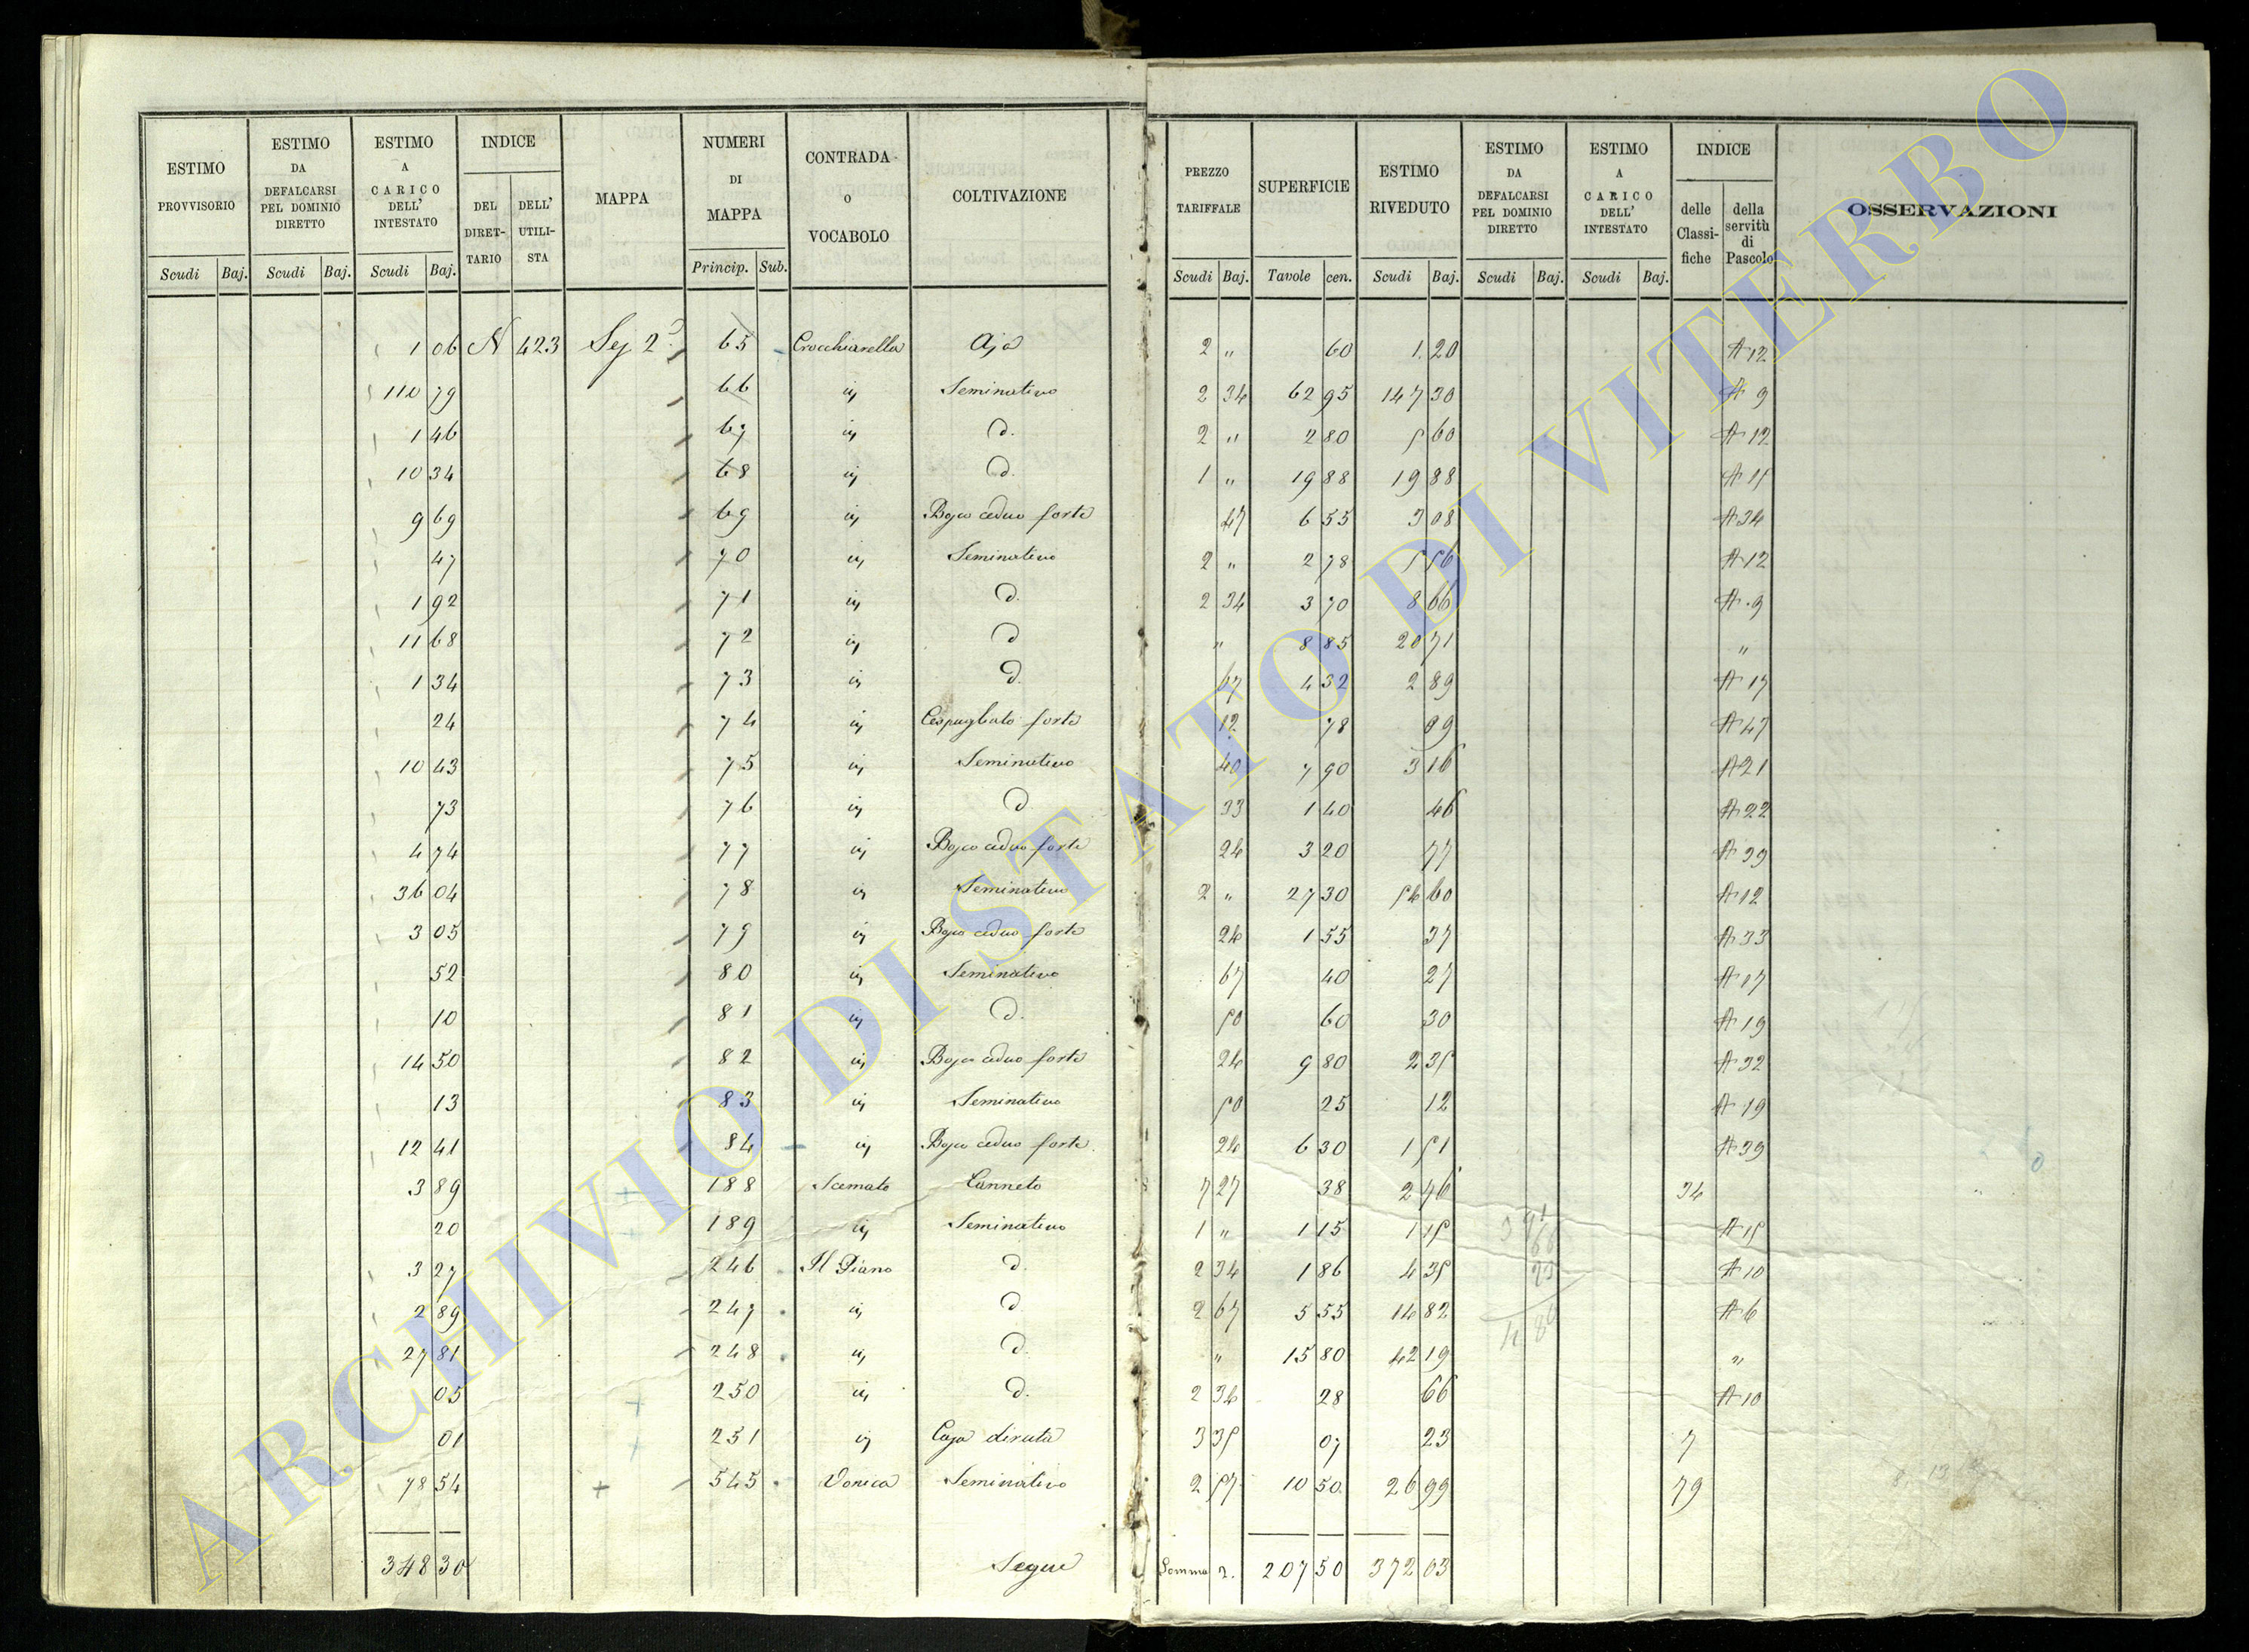 ESTIMO PROVVISORIO | ESTIMO DA DEFALCARSI PEL DOMINIO DIRETTO | ESTIMO A CARICO DELL' INTESTATO | INDICE | MAPPA | NUMERI DI MAPPA | CONTRADA O VOCABOLO | COLTIVAZIONE | PREZZO TARIFFALE | SUPERFICIE | ESTIMO RIVEDUTO | ESTIMO DA DEFALCARSI PEL DOMINIO DIRETTO | ESTIMO A CARICO DELL' INTESTATO | INDICE | OSSERVAZIONI
DEL DIRET- TARIO | DELL' UTILI- STA | delle Classi- fiche | della servitù di Pascolo
Scudi | Baj. | Scudi | Baj. | Scudi | Baj. | Princip. | Sub. | Scudi | Baj. | Tavole | cen. | Scudi | Baj. | Scudi | Baj. | Scudi | Baj.
1 06 | N 423 | Sez 2ª | 65 | Crocchiarella | Aja | 2 " | 60 | 1 20 | A 12
110 79 | 66 | ivi | Seminativo | 2 34 | 62 95 | 147 30 | A 9
1 46 | 67 | ivi | d. | 2 " | 2 80 | 5 60 | A 12
10 34 | 68 | ivi | d. | 1 " | 19 88 | 19 88 | A 15
9 69 | 69 | ivi | Bosco ceduo forte | 47 | 6 55 | 3 08 | A 34
47 | 70 | ivi | Seminativo | 2 " | 2 78 | 5 56 | A 12
1 92 | 71 | ivi | d. | 2 34 | 3 70 | 8 66 | A 9
11 68 | 72 | ivi | d | " | 8 85 | 20 71 | "
1 34 | 73 | ivi | d. | 67 | 4 32 | 2 89 | A 17
24 | 74 | ivi | Cespugliato forte | 12 | 78 | 09 | A 47
10 43 | 75 | ivi | Seminativo | 40 | 7 90 | 3 16 | A 21
73 | 76 | ivi | d | 33 | 1 40 | 46 | A 22
4 74 | 77 | ivi | Bosco ceduo forte | 24 | 3 20 | 77 | A 39
36 04 | 78 | ivi | Seminativo | 2 " | 27 30 | 54 60 | A 12
3 05 | 79 | ivi | Bosco ceduo forte | 24 | 1 55 | 37 | A 33
52 | 80 | ivi | Seminativo | 67 | 40 | 27 | A 17
10 | 81 | ivi | d. | 50 | 60 | 30 | A 19
14 50 | 82 | ivi | Bosco ceduo forte | 24 | 9 80 | 2 35 | A 32
13 | 83 | ivi | Seminativo | 50 | 25 | 12 | A 19
12 41 | 84 | ivi | Bosco ceduo forte | 24 | 6 30 | 1 51 | A 39
3 89 | 188 | Scemate | Canneto | 7 27 | 38 | 2 76 | 34
20 | 189 | ivi | Seminativo | 1 " | 1 15 | 1 15 | A 15
3 27 | 246 | Il Piano | d | 2 34 | 1 86 | 4 35 | A 10
2 89 | 247 | ivi | d | 2 67 | 5 55 | 14 82 | A 6
27 81 | 248 | ivi | d. | " | 15 80 | 42 19 | "
05 | 250 | ivi | d. | 2 34 | 28 | 66 | A 10
01 | 251 | ivi | Casa diruta | 3 35 | 07 | 23 | 7
78 54 | 545 | Vonica | Seminativo | 2 57 | 10 50 | 26 99 | 79
348 30 | Segue | Somma | 207 50 | 372 03
ARCHIVIO DI STATO DI VITERBO